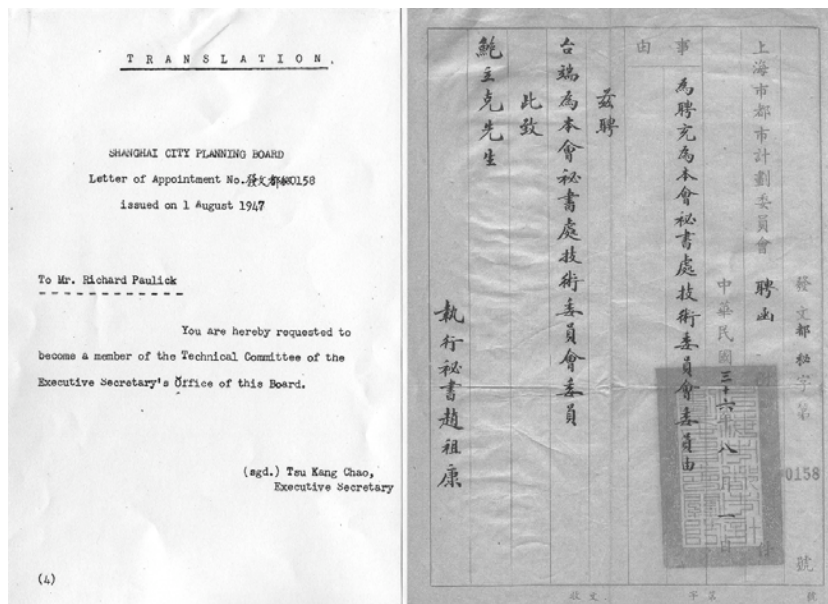 TRANSLATION.
SHANGHAI CITY PLANNING BOARD
Letter of Appointment No.發文都秘0158
issued on 1 August 1947
To Mr. Richard Paulick
You are hereby requested to
become a member of the Technical Committee of the
Executive Secretary's Office of this Board.
(sgd.) Tsu Kang Chao,
Executive Secretary
(4)
上海市都市計劃委員會 聘函
發文都秘字第 0158 號
中華民國三十六年八月一日
事由
為聘充為本會秘書處技術委員會委員由
茲聘
台端為本會秘書處技術委員會委員
此致
鮑立克先生
執行秘書趙祖康
收文 字第 號